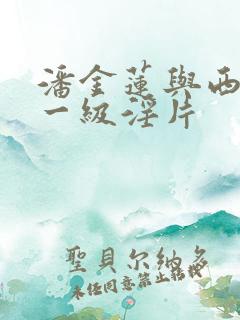 潘金蓮與西
一級淫片
聖貝尔納多
未经同意禁止转载